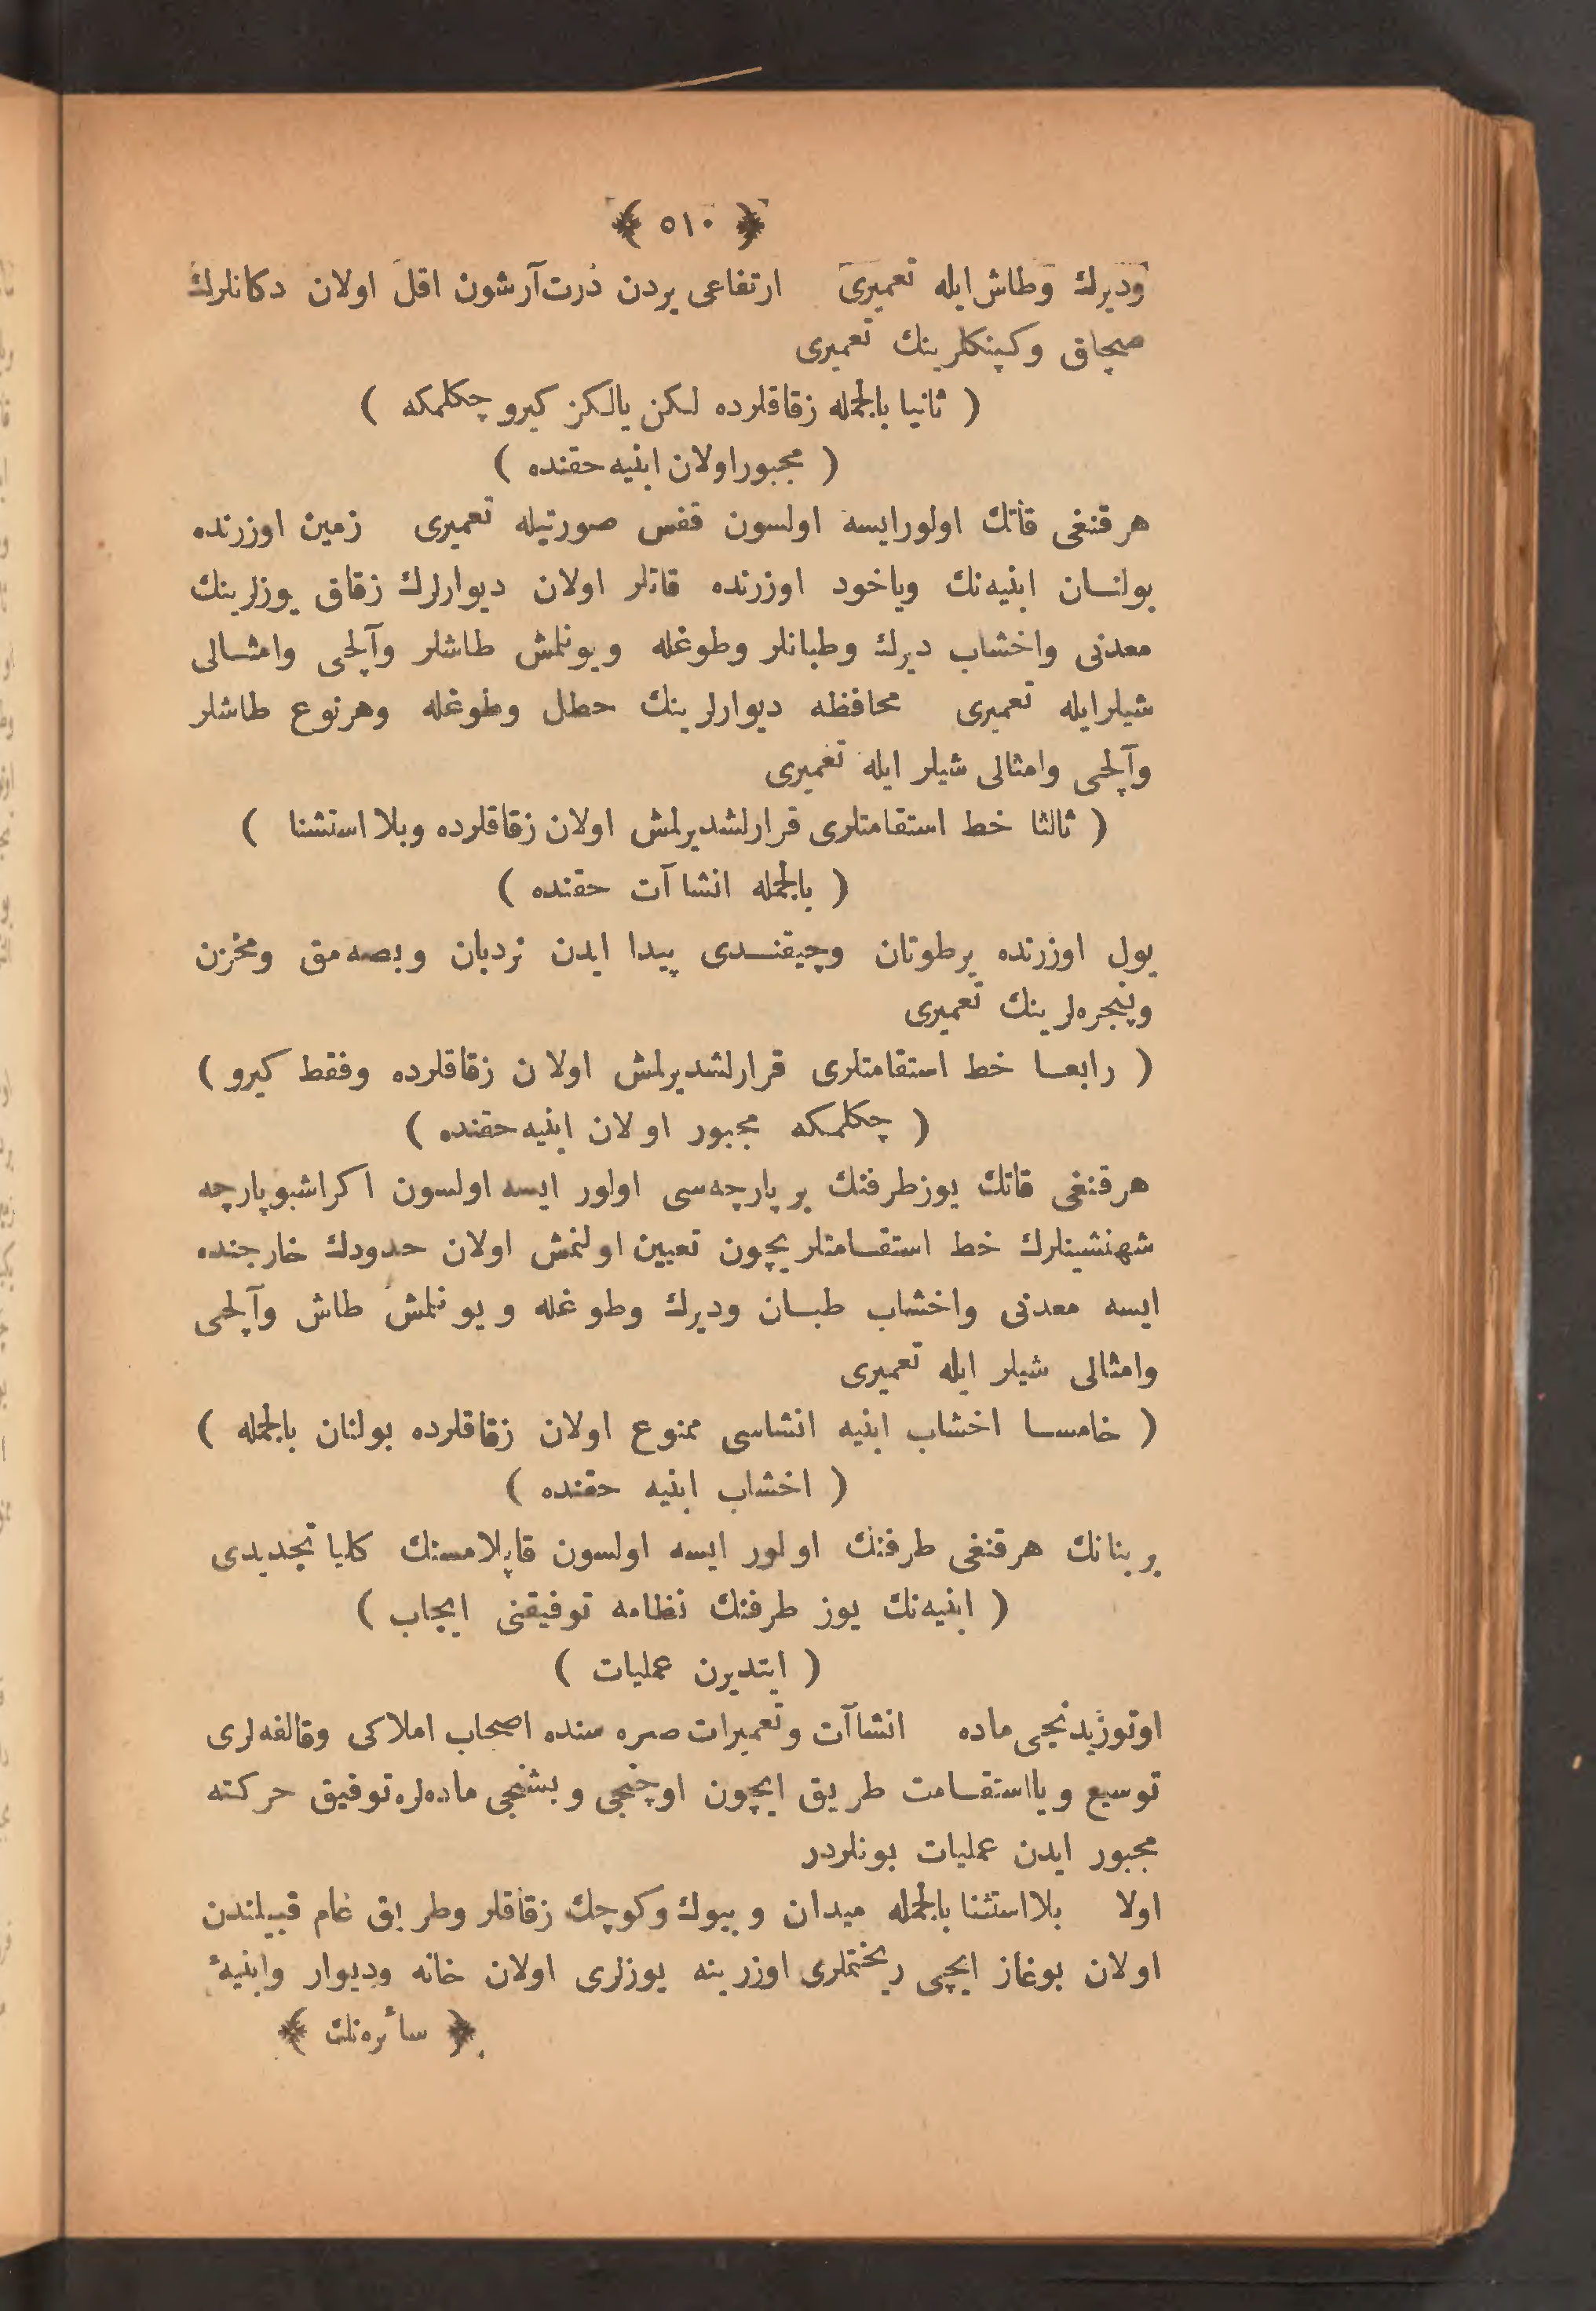 ﴿ ٥١٠ ﴾
ودیرك وطاش ایله تعمیری ارتفاعی یردن درت آرشون اقل اولان دكانلرك
صچاق وكپنكلرینك تعمیری
( ثانیا بالجمله زقاقلرده لكن یالكز كیرو چكلمكه )
( مجبور اولان ابنیه حقنده )
هر قنغی قاتك اولورایسه اولسون قفس صورتیله تعمیری زمین اوزرنده
بولنـان ابنیه‌نك ویاخود اوزرنده قاتلر اولان دیوارلرك زقاق یوزلرینك
معدنی واخشاب دیرك وطبانلر وطوغله ویونلمش طاشلر وآلچی وامثـالی
شیلرایله تعمیری محافظه دیوارلرینك حطل وطوغله وهرنوع طاشلر
وآلچی وامثالی شیلر ایله تعمیری
( ثالثا خط استقامتلری قرارلشدیرلمش اولان زقاقلرده وبلا استثنا )
( بالجمله انشاآت حقنده )
یول اوزرنده یرطوتان وچیقنـدی پیدا ایدن نردبان وبصه‌مق ومخزن
وپنجره‌لرینك تعمیری
( رابعـا خط استقامتلری قرارلشدیرلمش اولان زقاقلرده وفقط كیرو )
( چكلمكه مجبور اولان ابنیه حقنده )
هر قنغی قاتك یوزطرفنك بر پارچه‌سی اولور ایسه اولسون اكر اشبو پارچه
شهنشینلرك خط استقـامتلریچون تعیین اولنمش اولان حدودك خارجنده
ایسه معدنی واخشاب طبـان ودیرك وطوغله ویونلمش طاش وآلچی
وامثالی شیلر ایله تعمیری
( خامسـا اخشاب ابنیه انشاسی ممنوع اولان زقاقلرده بولنان بالجمله )
( اخشاب ابنیه حقنده )
بربنانك هرقنغی طرفنك اولور ایسه اولسون قاپلامسنك كلیا تجدیدی
( ابنیه‌نك یوز طرفنك نظامه توفیقنی ایجاب )
( ایتدیرن عملیات )
اوتوزیدنجی ماده انشاآت وتعمیرات صره سنده اصحاب املاكی وقالفه‌لری
توسیع ویااستقـامت طریق ایچون اوچنجی وبشنجی ماده‌لره توفیق حركته
مجبور ایدن عملیات بونلردر
اولا بلااستثنا بالجمله میدان وبیوك وكوچك زقاقلر وطریق عام قبیلندن
اولان بوغاز ایچی ریختملری اوزرینه یوزلری اولان خانه ودیوار وابنیهٔ
﴿ سائره‌نك ﴾